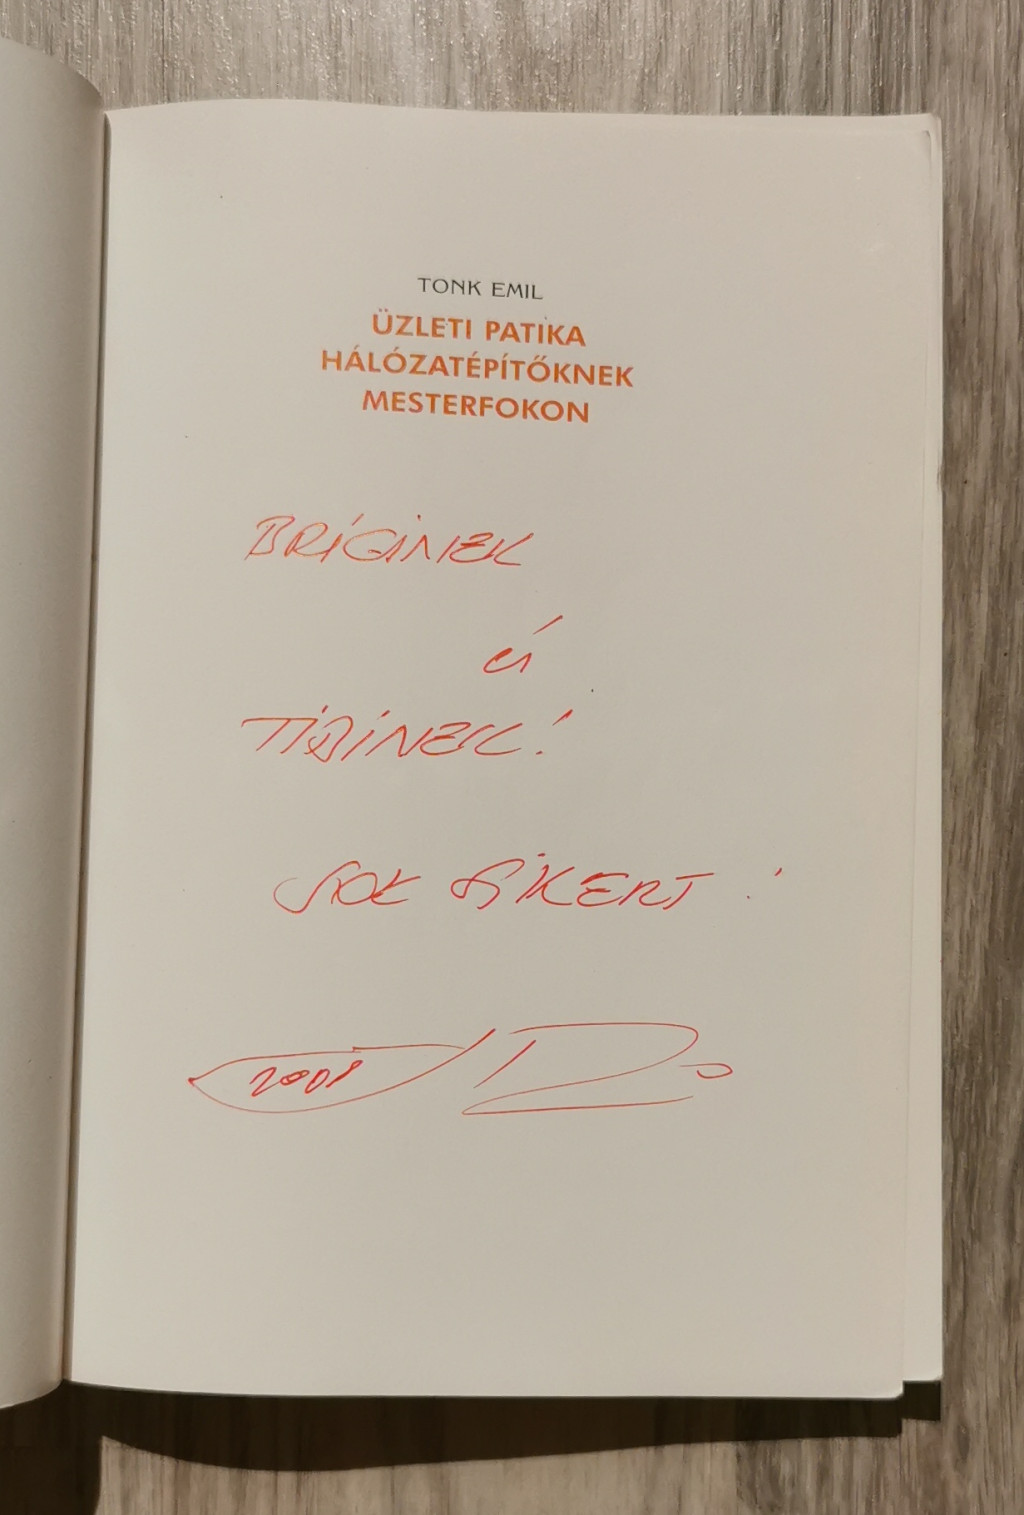 TONK EMIL
ÜZLETI PATIKA
HÁLÓZATÉPÍTŐKNEK
MESTERFOKON
BRIGINEK
és
TIBINEK!
SOK SIKERT!
2008